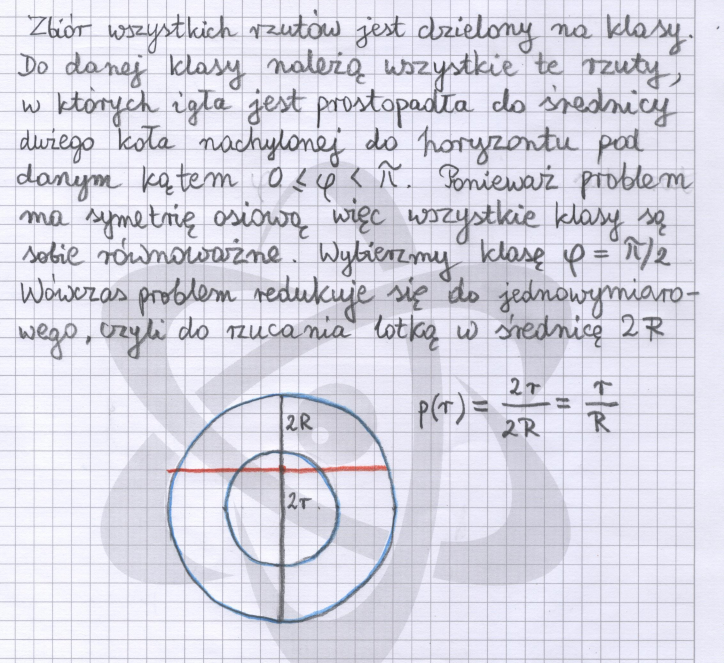 Zbiór wszystkich rzutów jest dzielony na klasy.
Do danej klasy należą wszystkie te rzuty,
w których igła jest prostopadła do średnicy
dużego koła nachylonej do horyzontu pod
danym kątem 0 ≤ φ < π. Ponieważ problem
ma symetrię osiową więc wszystkie klasy są
sobie równoważne. Wybierzmy klasę φ = π/2
Wówczas problem redukuje się do jednowymiaro-
wego, czyli do rzucania lotką w średnicę 2R
p(r) = 2r/2R = r/R
2R
2r